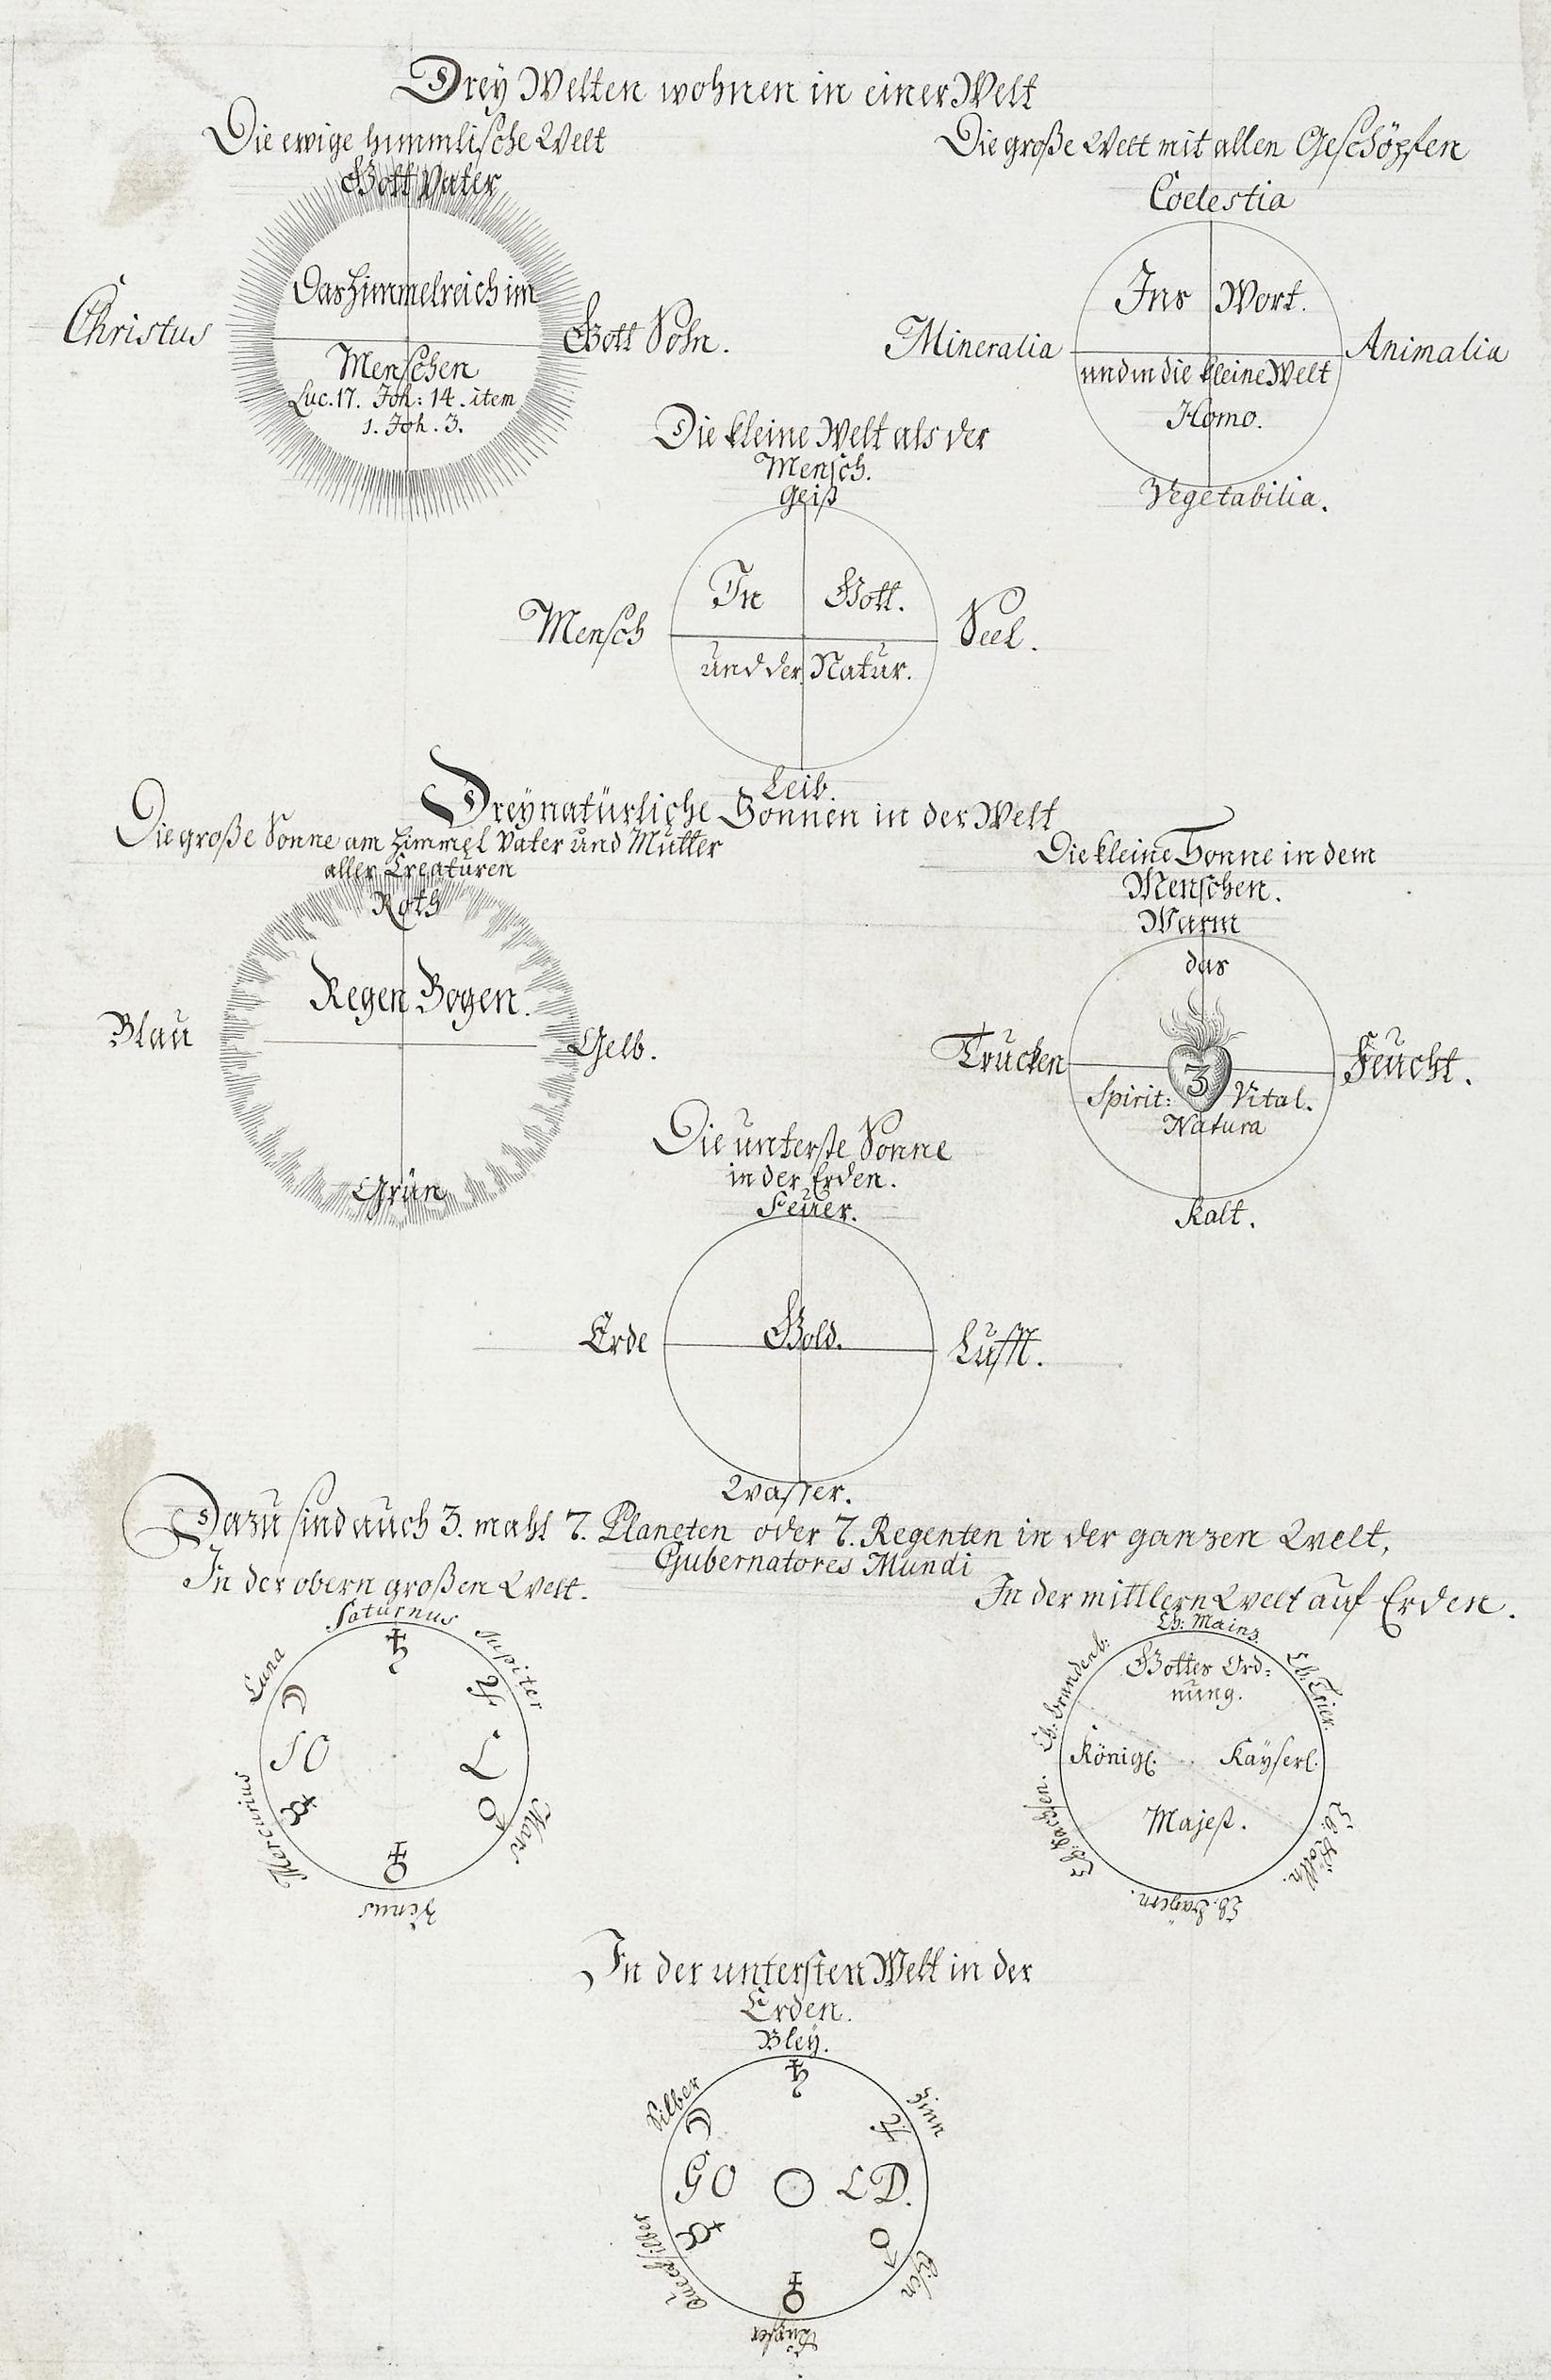 Drey Welten wohnen in einer Welt
Die ewige himmlische Welt
Gott Vater
Christus
Das Himmelreich im
Menschen
Luc. 17. Joh: 14. item
1. Joh. 3.
Gott Sohn.
Die große Welt mit allen Geschöpfen
Coelestia
Mineralia
Ins Wort.
und in die kleine Welt
Homo.
Animalia
Vegetabilia.
Die kleine Welt als der
Mensch.
Geist
Mensch
In Gott.
und der Natur.
Seel.
Leib.
Drey natürliche Sonnen in der Welt
Die große Sonne am Himmel Vater und Mutter
aller Creaturen
Roth
Blau
Regen Bogen.
Gelb.
Grün
Die kleine Sonne in dem
Menschen.
Warm
das
Trucken
3
Feucht.
Spirit: Vital.
Natura
Kalt.
Die unterste Sonne
in der Erden.
Feuer.
Erde
Gold.
Lufft.
Wasser.
Dazu sind auch 3. mahl 7. Planeten oder 7. Regenten in der ganzen Welt,
Gubernatores Mundi
In der obern großen Welt.
Saturnus
♄
Jupiter
♃
Luna
☽
SO L
Mercurius
☿
Mars
♂
♀
Venus
In der mittlern Welt auf Erden.
Cb: Mainz
Cb: Trier
Cb: Brandenb:
Gottes Ord=
nung.
Königl. Kayserl.
Majest.
Cb: Sachsen.
Cb: Kölln.
Cb. Bayern.
In der untersten Welt in der
Erden.
Bley.
♄
Zinn
♃
Silber
☽
GO LD.
Quecksilber
☿
Eisen
♂
♀
Kupfer